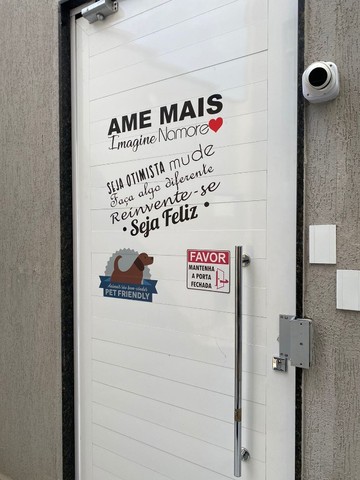 AME MAIS
Imagine Namore
SEJA OTIMISTA mude
Faça algo diferente
Reinvente-se
• Seja Feliz •
Animais são bem-vindos
PET FRIENDLY
FAVOR
MANTENHA
A PORTA
FECHADA